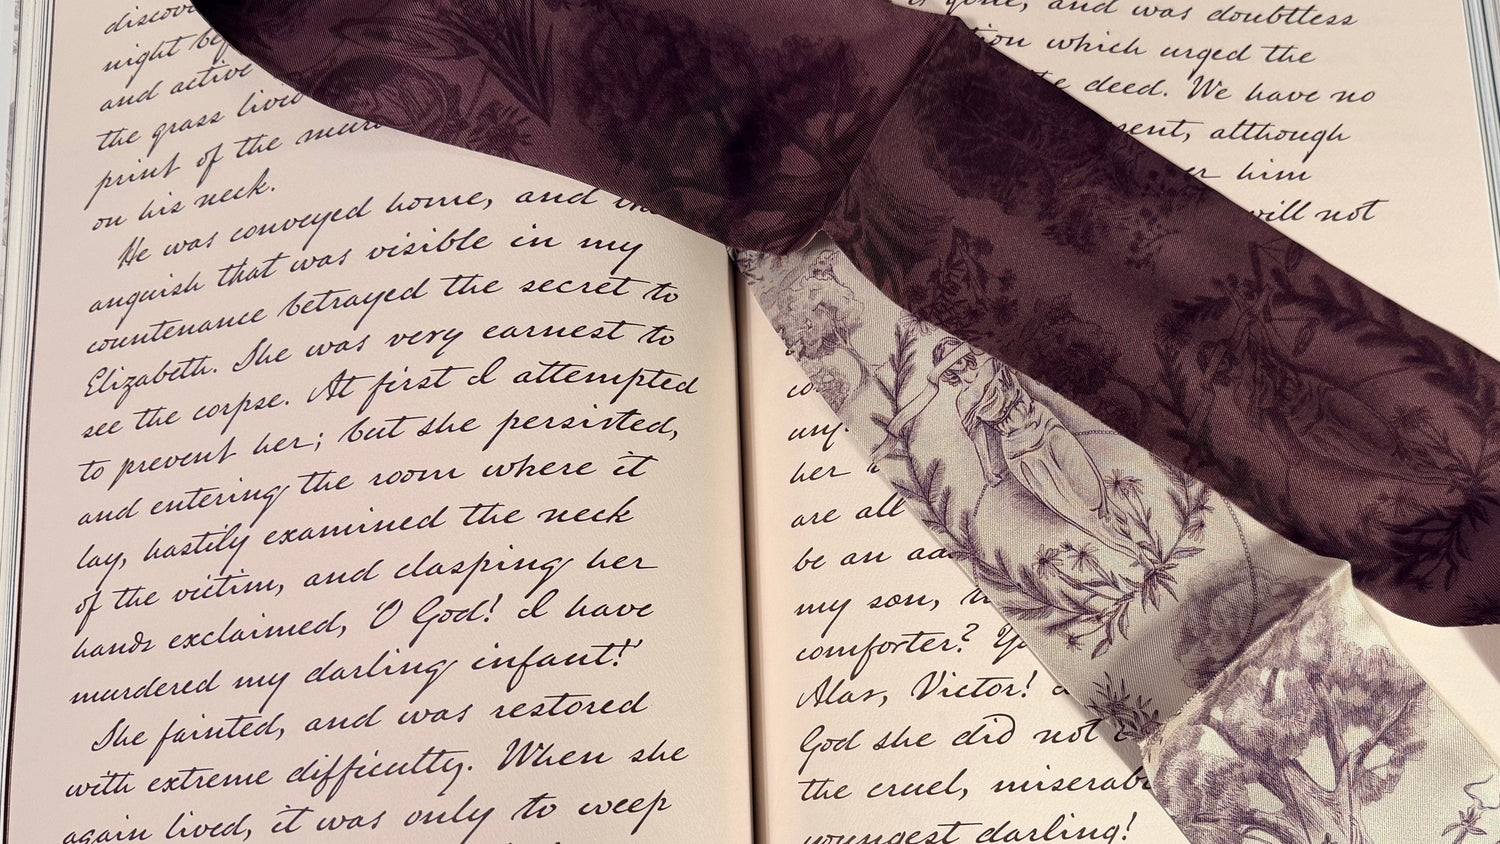 discov
night bef
and active
the grass livid
print of the mur
on his neck.
He was conveyed home, and the
anguish that was visible in my
countenance betrayed the secret to
Elizabeth. She was very earnest to
see the corpse. At first I attempted
to prevent her; but she persisted,
and entering the room where it
lay, hastily examined the neck
of the victim, and clasping her
hands exclaimed, 'O God! I have
murdered my darling infant!'
She fainted, and was restored
with extreme difficulty. When she
again lived, it was only to weep
is gone, and was doubtless
tion which urged the
deed. We have no
sent, although
him
will not
any
her
are all
be an
my son,
comforter?
Alas, Victor!
God she did not
the cruel, miserab
youngest darling!